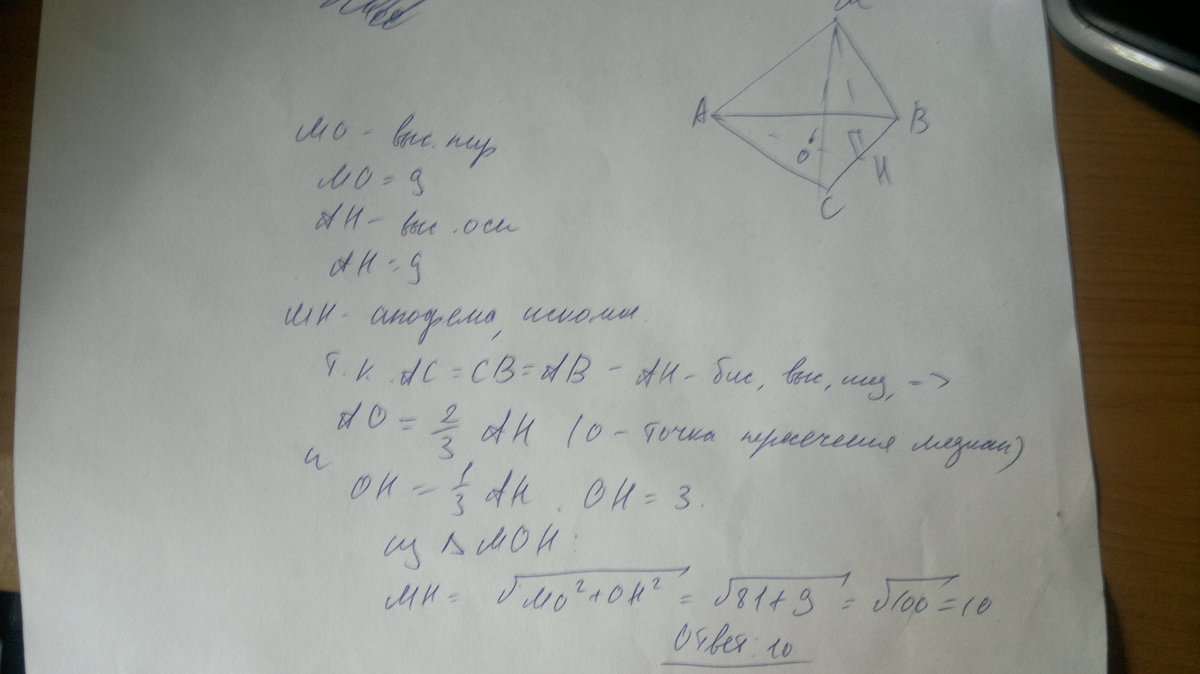 M
A
B
O
H
C
MO - выс. пир
MO = 9
AH - выс. осн
AH = 9
MH - апофема, искомая.
т.к. AC = CB = AB - AH - бис, выс, мед, =>
AO = 2/3 AH (O - точка пересечения медиан)
и
OH = 1/3 AH. OH = 3.
из △ MOH:
MH = √MO²+OH² = √81+9 = √100 = 10
Ответ: 10